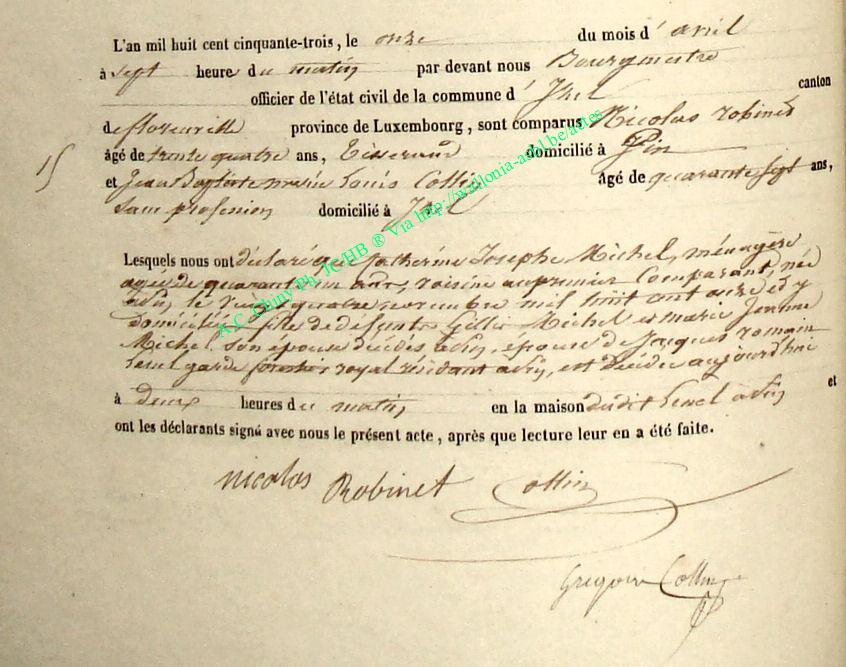 L'an mil huit cent cinquante-trois, le onze du mois d'avril
à sept heure du matin par devant nous Bourgmestre
officier de l'état civil de la commune d'Izel canton
de florenville province de Luxembourg, sont comparus Nicolas robinet
15
âgé de trente quatre ans, tisserand domicilié à Pin
et Jean Baptiste marie Louis Collin âgé de quarante sept ans,
sans profession domicilié à Izel
Lesquels nous ont déclaré que Catherine Josephe Michel, ménagère
agée de quarante un ans, voisine au premier Comparant, née
à Pin, le vingt quatre novembre mil huit cent onze et y
domiciliée fille de défunts Gilles Michel et marie Jeanne
Michel son épouse décédés à Pin, épouse de Jacques romain
garde forestier royal résidant à Pin, est décédée aujourd'hui
à deux heures du matin en la maison dudit à Pin et
ont les déclarants signé avec nous le présent acte, après que lecture leur en a été faite.
nicolas Robinet Collin
Gregoire Collin
A.C. Chiny Ph. JC-HB ® Via http://wallonia-asbl.be/actes